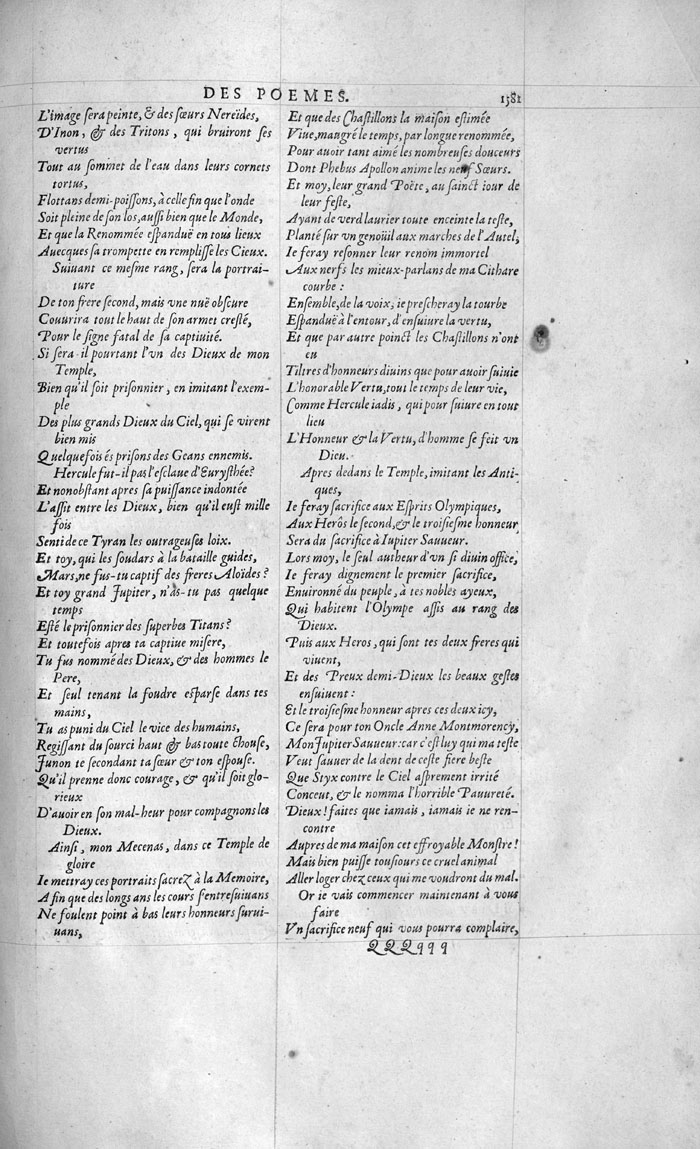 DES POEMES. 1581
L'image sera peinte, & des sœurs Nereïdes,
D'Inon, & des Tritons, qui bruiront ses
vertus
Tout au sommet de l'eau dans leurs cornets
tortus,
Flottans demi-poissons, à celle fin que l'onde
Soit pleine de son los, aussi bien que le Monde,
Et que la Renommée espanduë en tous lieux
Auecques sa trompette en remplisse les Cieux.
Suiuant ce mesme rang, sera la portrai-
ture
De ton frere second, mais vne nuë obscure
Couurira tout le haut de son armet cresté,
Pour le signe fatal de sa captiuité.
Si sera-il pourtant l'vn des Dieux de mon
Temple,
Bien qu'il soit prisonnier, en imitant l'exem-
ple
Des plus grands Dieux du Ciel, qui se virent
bien mis
Quelquefois és prisons des Geans ennemis.
Hercule fut-il pas l'esclaue d'Eurysthée?
Et nonobstant apres sa puissance indontée
L'assit entre les Dieux, bien qu'il eust mille
fois
Senti de ce Tyran les outrageuses loix.
Et toy, qui les soudars à la bataille guides,
Mars, ne fus-tu captif des freres Aloïdes?
Et toy grand Jupiter, n'as-tu pas quelque
temps
Esté le prisonnier des superbes Titans?
Et toutefois apres ta captiue misere,
Tu fus nommé des Dieux, & des hommes le
Pere,
Et seul tenant la foudre esparse dans tes
mains,
Tu as puni du Ciel le vice des humains,
Regissant du sourci haut & bas toute chouse,
Junon te secondant ta sœur & ton espouse.
Qu'il prenne donc courage, & qu'il soit glo-
rieux
D'auoir en son mal-heur pour compagnons les
Dieux.
Ainsi, mon Mecenas, dans ce Temple de
gloire
Ie mettray ces portraits sacrez à la Memoire,
A fin que des longs ans les cours s'entresuiuans
Ne foulent point à bas leurs honneurs surui-
uans,
Et que des Chastillons la maison estimée
Viue, maugré le temps, par longue renommée,
Pour auoir tant aimé les nombreuses douceurs
Dont Phebus Apollon anime les neuf Sœurs.
Et moy, leur grand Poëte, au sainct iour de
leur feste,
Ayant de verd laurier toute enceinte la teste,
Planté sur vn genoüil aux marches de l'Autel,
Ie feray resonner leur renom immortel
Aux nerfs les mieux-parlans de ma Cithare
courbe:
Ensemble, de la voix, ie prescheray la tourbe
Espanduë à l'entour, d'ensuiure la vertu,
Et que par autre poinct les Chastillons n'ont
eu
Tiltres d'honneurs diuins que pour auoir suiuie
L'honorable Vertu, tout le temps de leur vie,
Comme Hercule iadis, qui pour suiure en tout
lieu
L'Honneur & la Vertu, d'homme se feit vn
Dieu.
Apres dedans le Temple, imitant les Anti-
ques,
Ie feray sacrifice aux Esprits Olympiques,
Aux Herôs le second, & le troisiesme honneur
Sera du sacrifice à Iupiter Sauueur.
Lors moy, le seul autheur d'vn si diuin office,
Ie feray dignement le premier sacrifice,
Enuironné du peuple, à tes nobles ayeux,
Qui habitent l'Olympe assis au rang des
Dieux.
Puis aux Heros, qui sont tes deux freres qui
viuent,
Et des Preux demi-Dieux les beaux gestes
ensuiuent:
Et le troisiesme honneur apres ces deux icy,
Ce sera pour ton Oncle Anne Montmorency,
Mon Jupiter Sauueur: car c'est luy qui ma teste
Veut sauuer de la dent de ceste fiere beste
Que Styx contre le Ciel asprement irrité
Conceut, & le nomma l'horrible Pauureté.
Dieux! faites que iamais, iamais ie ne ren-
contre
Aupres de ma maison cet effroyable Monstre!
Mais bien puisse tousiours ce cruel animal
Aller loger chez ceux qui me voudront du mal.
Or ie vais commencer maintenant à vous
faire
Vn sacrifice neuf qui vous pourra complaire,
QQQqqq